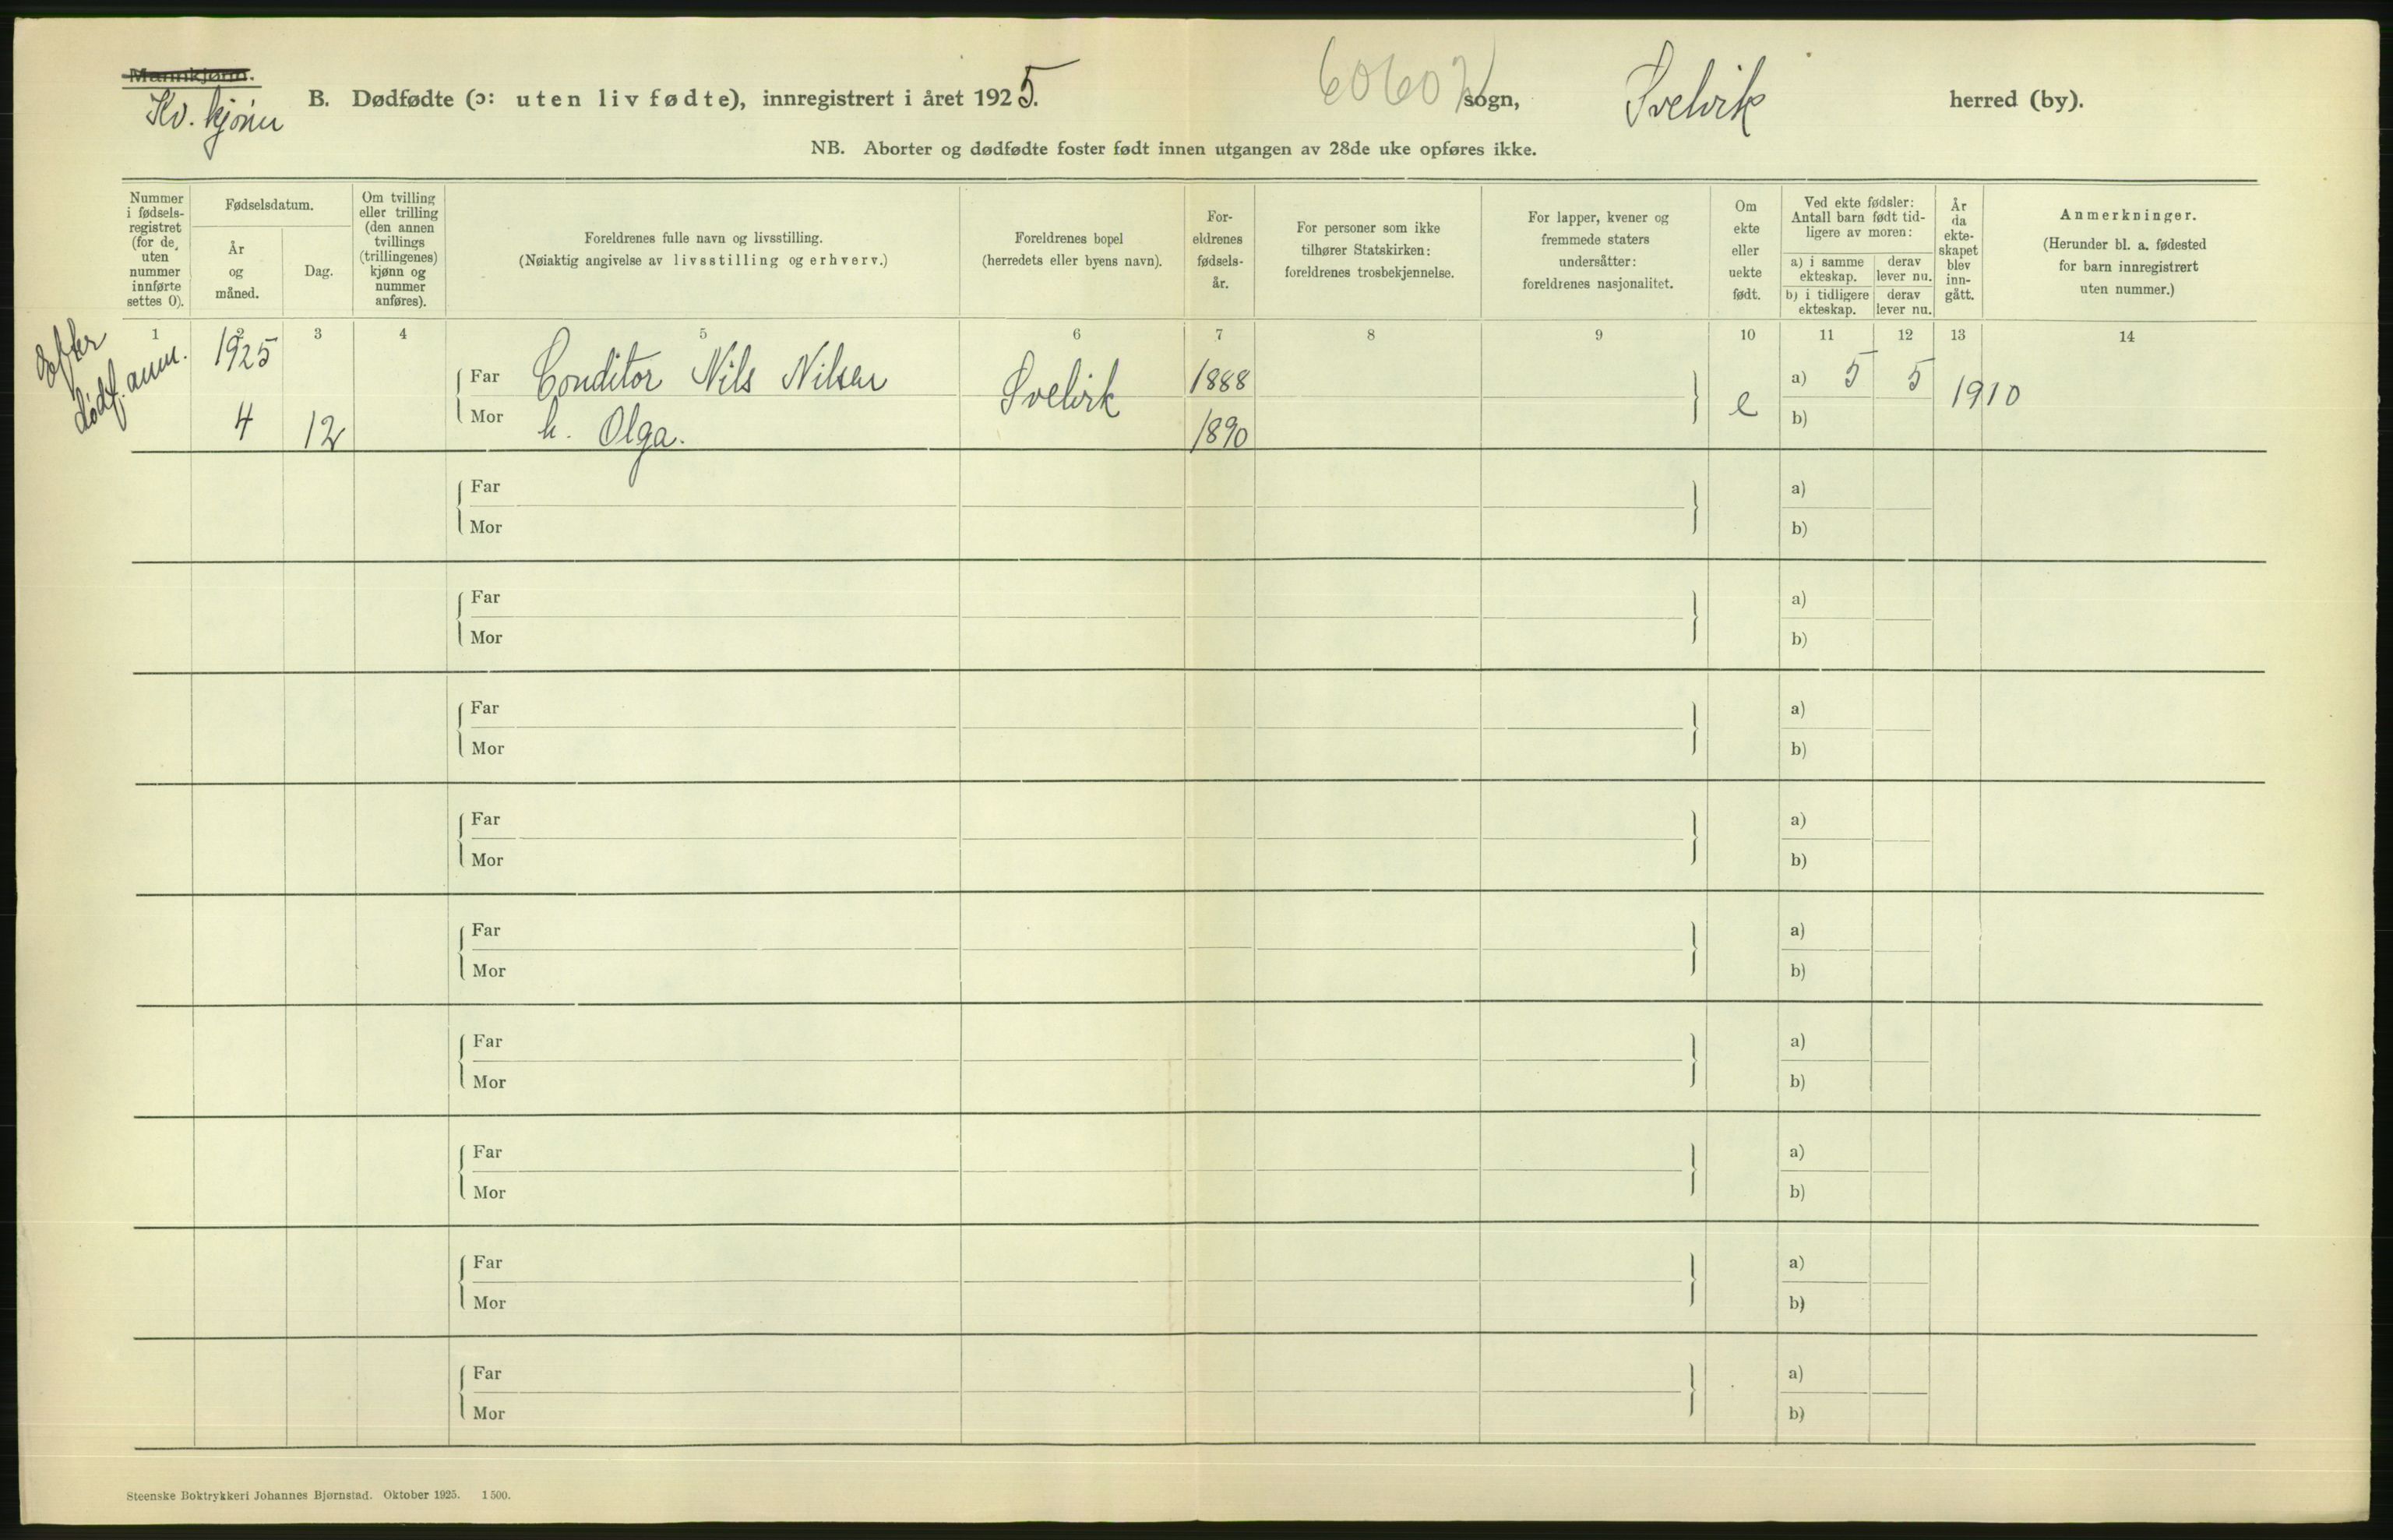 Mannkjønn.
Kv. kjønn
B. Dødfødte (ɔ: uten liv fødte), innregistrert i året 1925.
sogn,
Svelvik
herred (by).
NB. Aborter og dødfødte foster født innen utgangen av 28de uke opføres ikke.
Nummer
i fødsels-
registret
(for de
uten
nummer
innførte
settes 0).
Fødselsdatum.
År
og
måned.
Dag.
Om tvilling
eller trilling
(den annen
tvillings
(trillingenes)
kjønn og
nummer
anføres).
Foreldrenes fulle navn og livsstilling.
(Nøiaktig angivelse av livsstilling og erhverv.)
Foreldrenes bopel
(herredets eller byens navn).
For-
eldrenes
fødsels-
år.
For personer som ikke
tilhører Statskirken:
foreldrenes trosbekjennelse.
For lapper, kvener og
fremmede staters
undersåtter:
foreldrenes nasjonalitet.
Om
ekte
eller
uekte
født.
Ved ekte fødsler:
Antall barn født tid-
ligere av moren:
a) i samme
ekteskap.
derav
lever nu.
b) i tidligere
ekteskap.
derav
lever nu.
År
da
ekte-
skapet
blev
inn-
gått.
Anmerkninger.
(Herunder bl. a. fødested
for barn innregistrert
uten nummer.)
1 2 3 4 5 6 7 8 9 10 11 12 13 14
Efter
dødf. anm.
1925
4 12
Far Conditor Nils Nilsen
Mor h. Olga.
Svelvik
1888
1890
e
a) 5 5
b)
1910
Far a)
Mor b)
Far a)
Mor b)
Far a)
Mor b)
Far a)
Mor b)
Far a)
Mor b)
Far a)
Mor b)
Far a)
Mor b)
Far a)
Mor b)
Far a)
Mor b)
Steenske Boktrykkeri Johannes Bjørnstad. Oktober 1925. 1500.